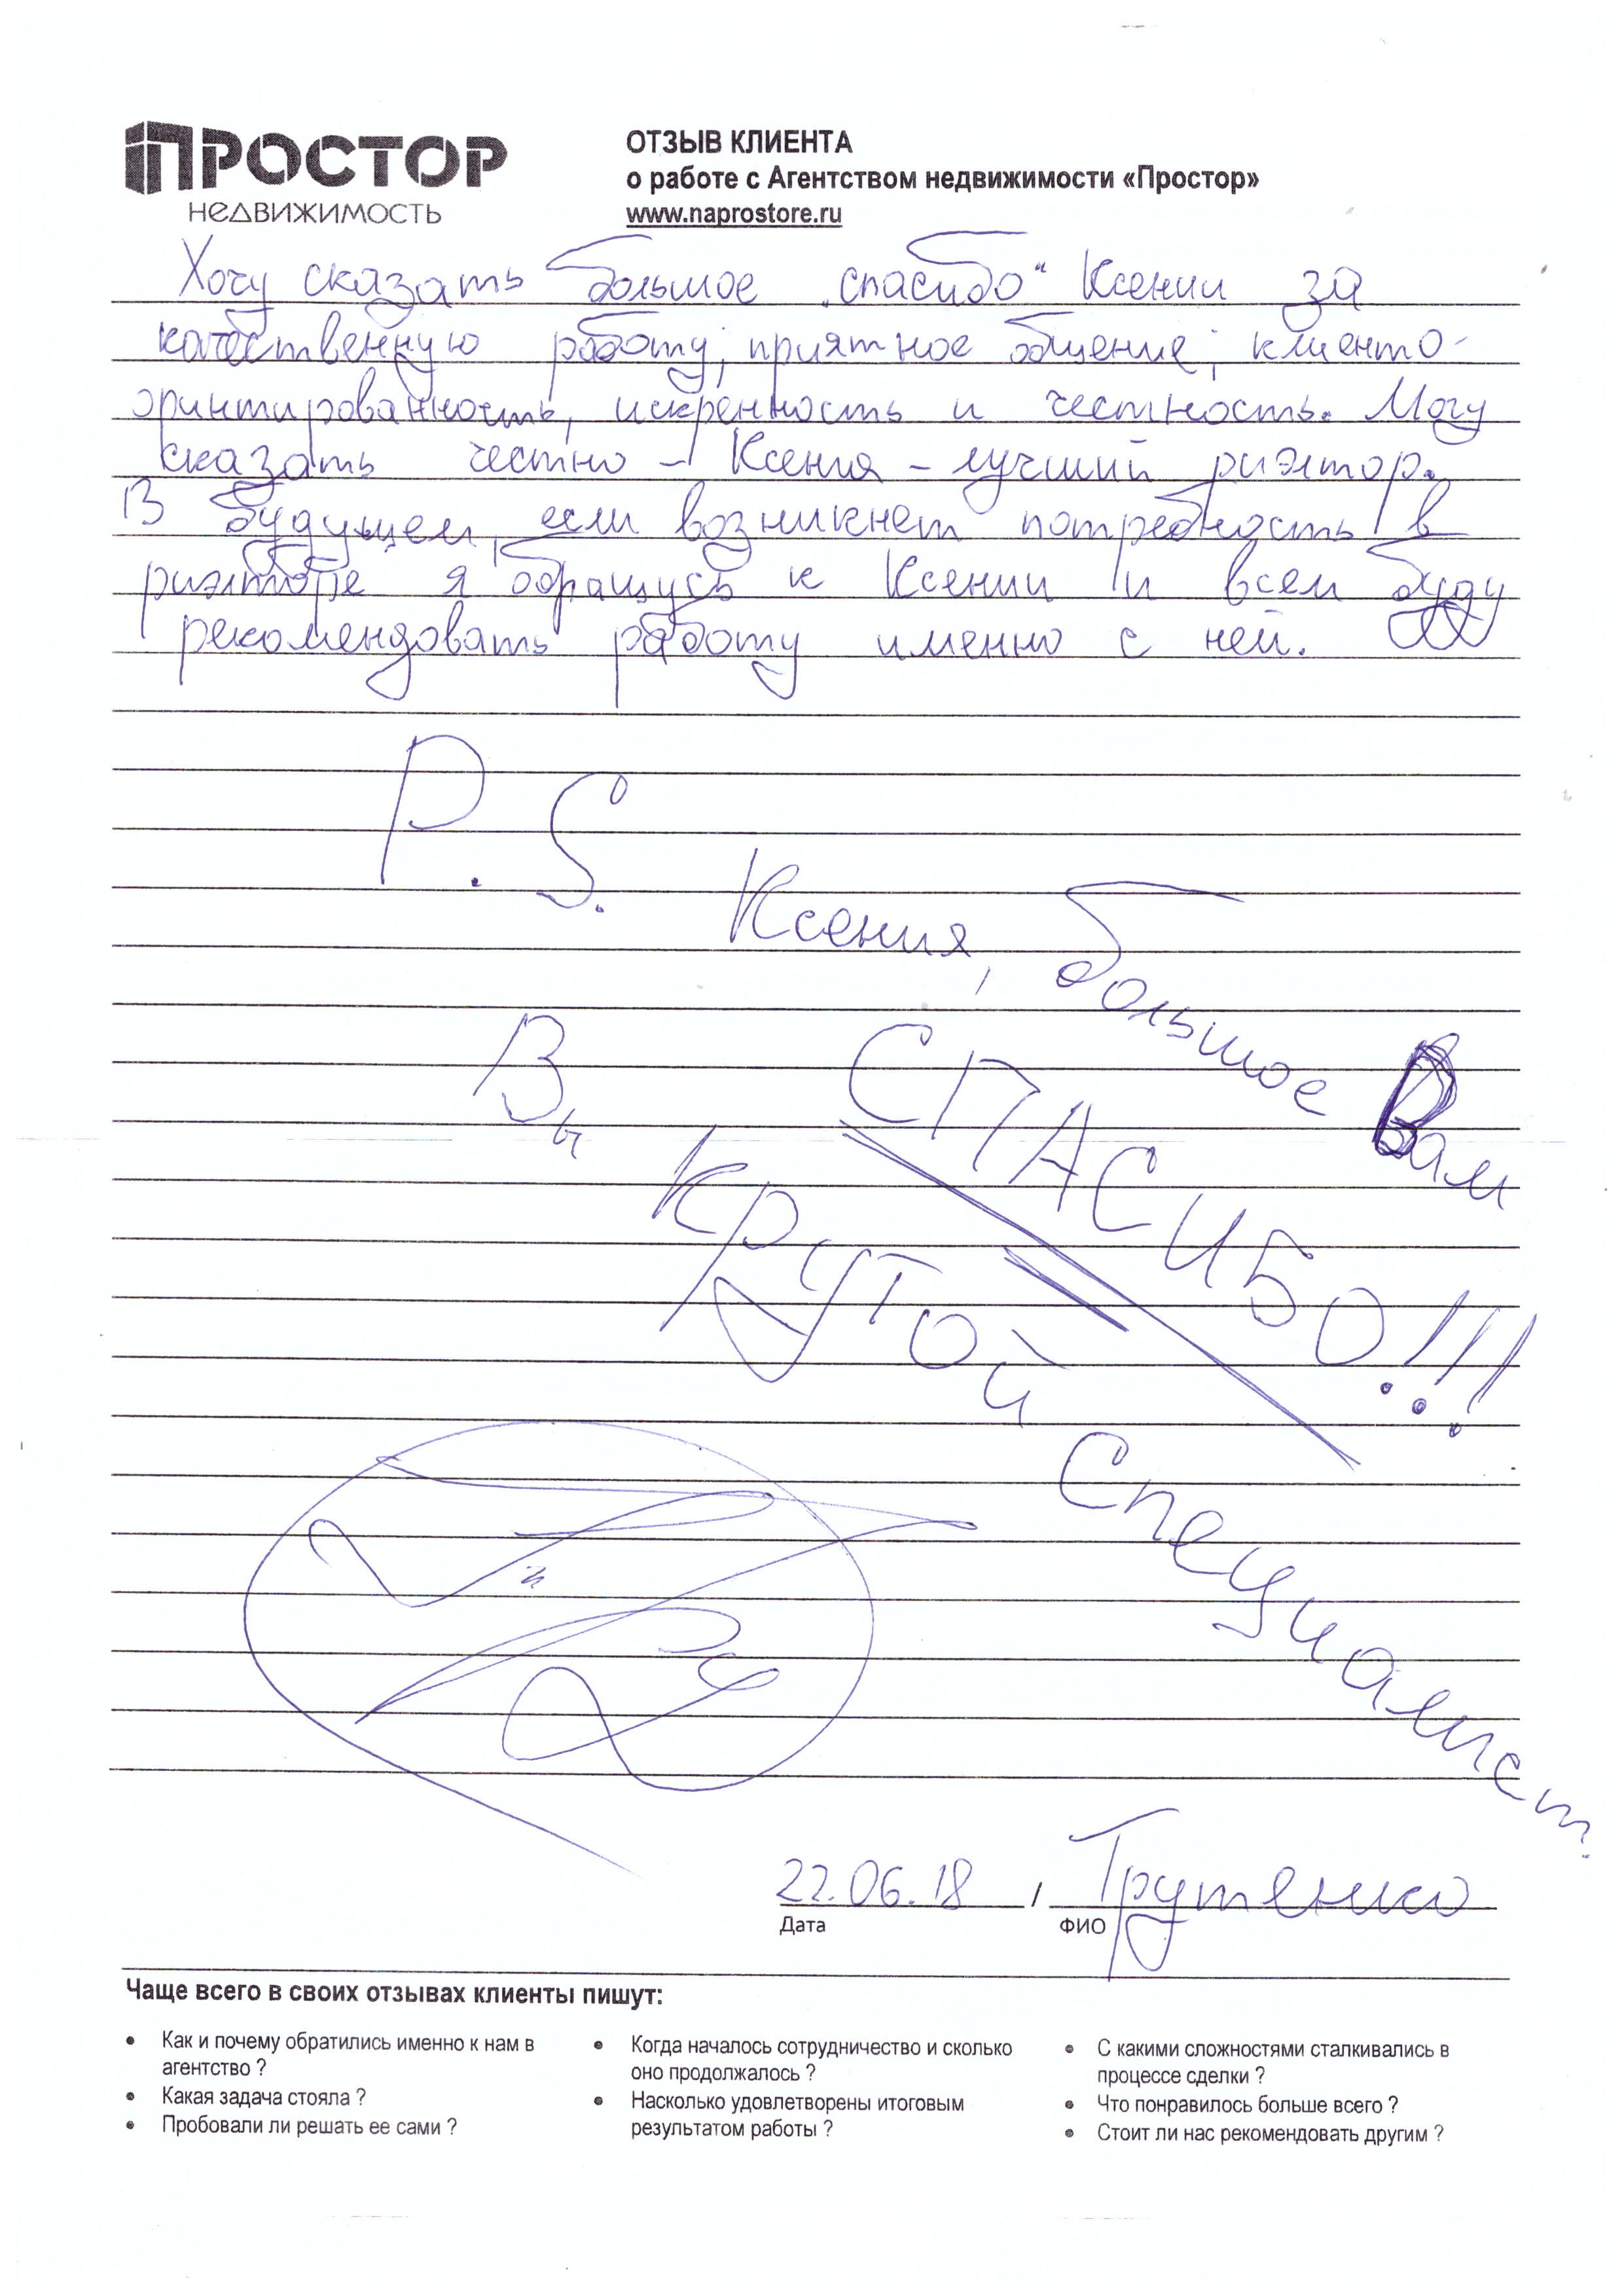 ПРОСТОР
НЕДВИЖИМОСТЬ
ОТЗЫВ КЛИЕНТА
о работе с Агентством недвижимости «Простор»
www.naprostore.ru
Хочу сказать большое „спасибо" Ксении за
качественную работу, приятное общение, клиенто-
оринтированность, искренность и честность. Могу
сказать честно – Ксения – лучший риэлтор.
В будущем, если возникнет потребность в
риэлторе я обращусь к Ксении и всем буду
рекомендовать работу именно с ней.
P.S.
Ксения, большое Вам
СПАСИБО!!!
Вы крутой специалист.
22.06.18 / Трутенко
Дата ФИО
Чаще всего в своих отзывах клиенты пишут:
• Как и почему обратились именно к нам в
агентство ?
• Какая задача стояла ?
• Пробовали ли решать ее сами ?
• Когда началось сотрудничество и сколько
оно продолжалось ?
• Насколько удовлетворены итоговым
результатом работы ?
• С какими сложностями сталкивались в
процессе сделки ?
• Что понравилось больше всего ?
• Стоит ли нас рекомендовать другим ?